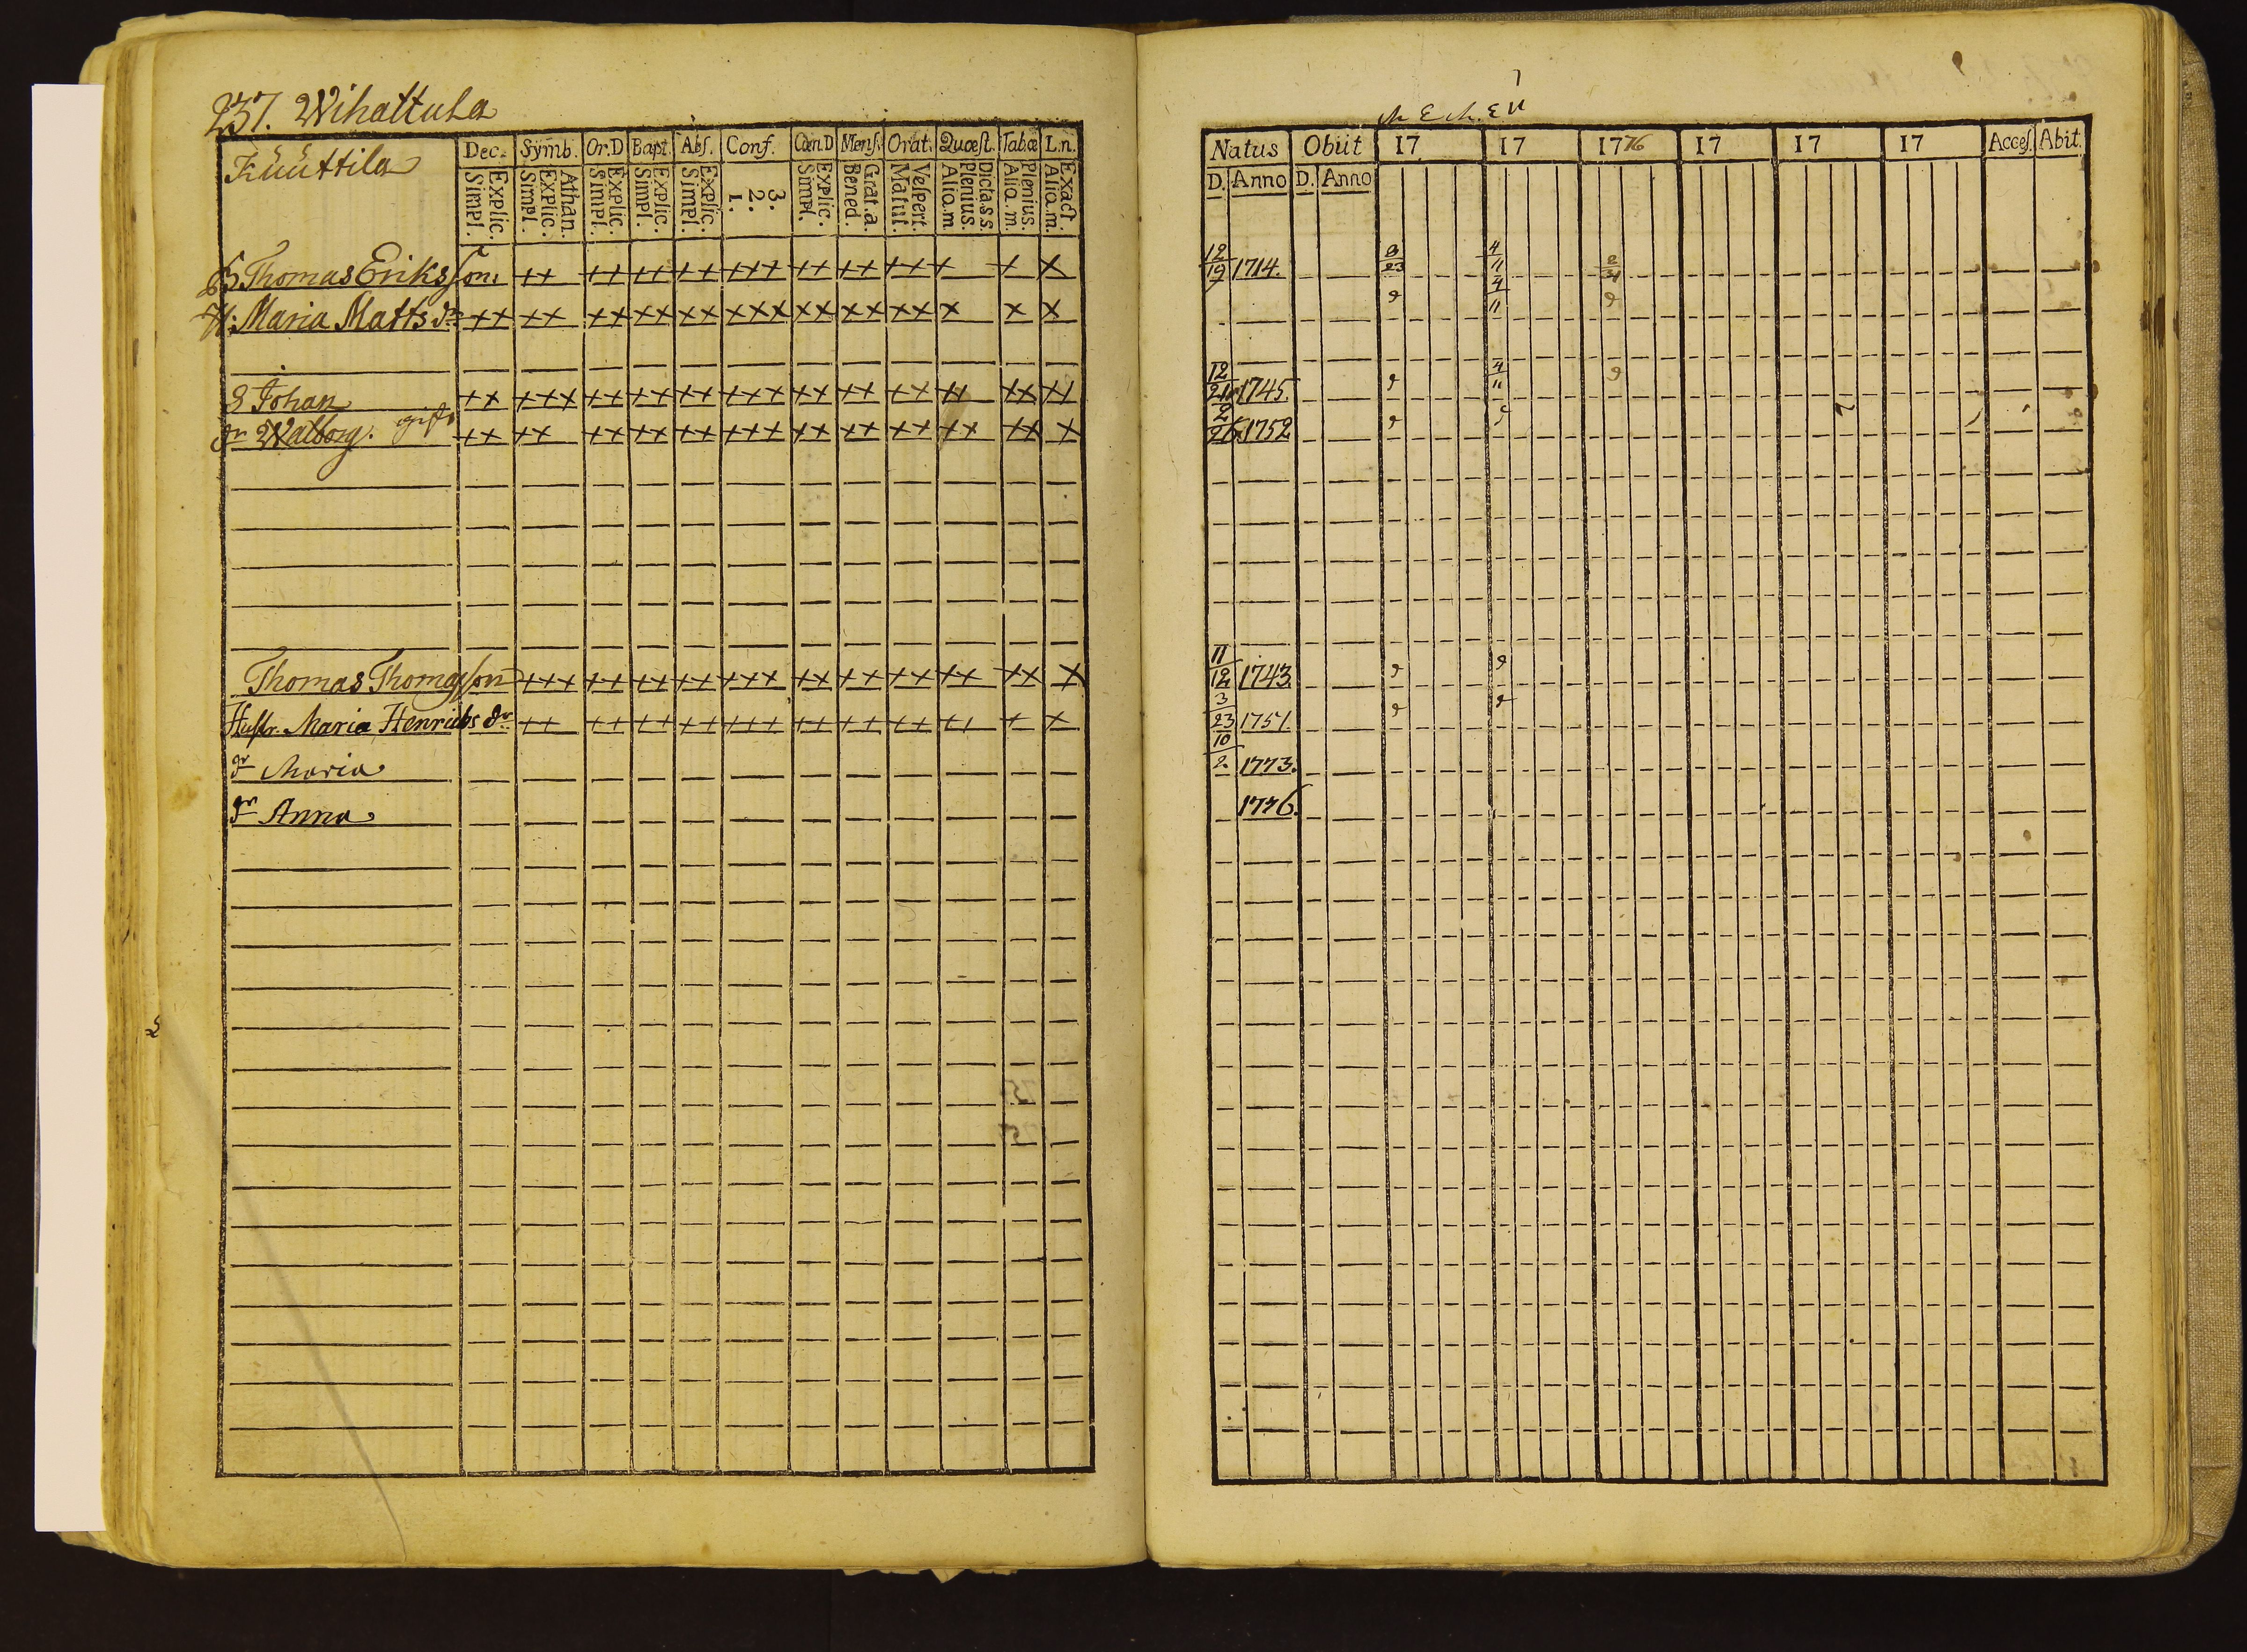 237. Wihattula
Kuuttila
Dec. Symb. Or.D Bapt. Abs. Conf. Cœn.D Mens. Orat. Quæst. Tabæ L.n.
Explic. Simpl. Athan. Explic. Simpl. Explic. Simpl. Explic. Simpl. Explic. Simpl. 3. 2. 1. Explic. Simpl. Grat.a. Bened. Vespert. Matut. Dicta.s.s. Plenius. Aliq.m Plenius. Aliq.m. Exact. Aliq.m.
B Thomas Eriksson ++ ++ ++ ++ +++ ++ ++ +++ + + x
H: Maria Matts dr ++ ++ ++ ++ ++ xxx xx xx xx x x x
S Johan ++ +++ ++ ++ ++ +++ ++ ++ ++ ++ ++ ++
dr Walborg. gift ++ ++ ++ ++ ++ +++ ++ ++ ++ ++ ++ +
Thomas Thomasson +++ ++ ++ ++ +++ ++ ++ ++ ++ ++ x
Hustr. Maria Henriks dr ++ ++ ++ ++ +++ ++ ++ ++ ++ + x
dr Maria
dr Anna
Natus Obiit 17 17 1776 17 17 17 Acces. Abit.
D. Anno D. Anno
12/19 1714. 3/23 4/11
4/11
12/21 1745. 4/11
2/25 1752
11/12 1743
3/23 1751.
10/2. 1773.
1776.